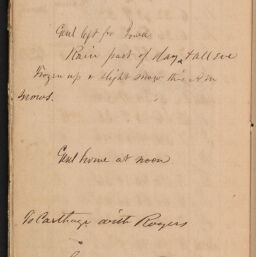 left for Iowa
Rain part of day & all eve
Frozen up & slight snow this A.M
snows.
home at noon
To Carthage with Rogers